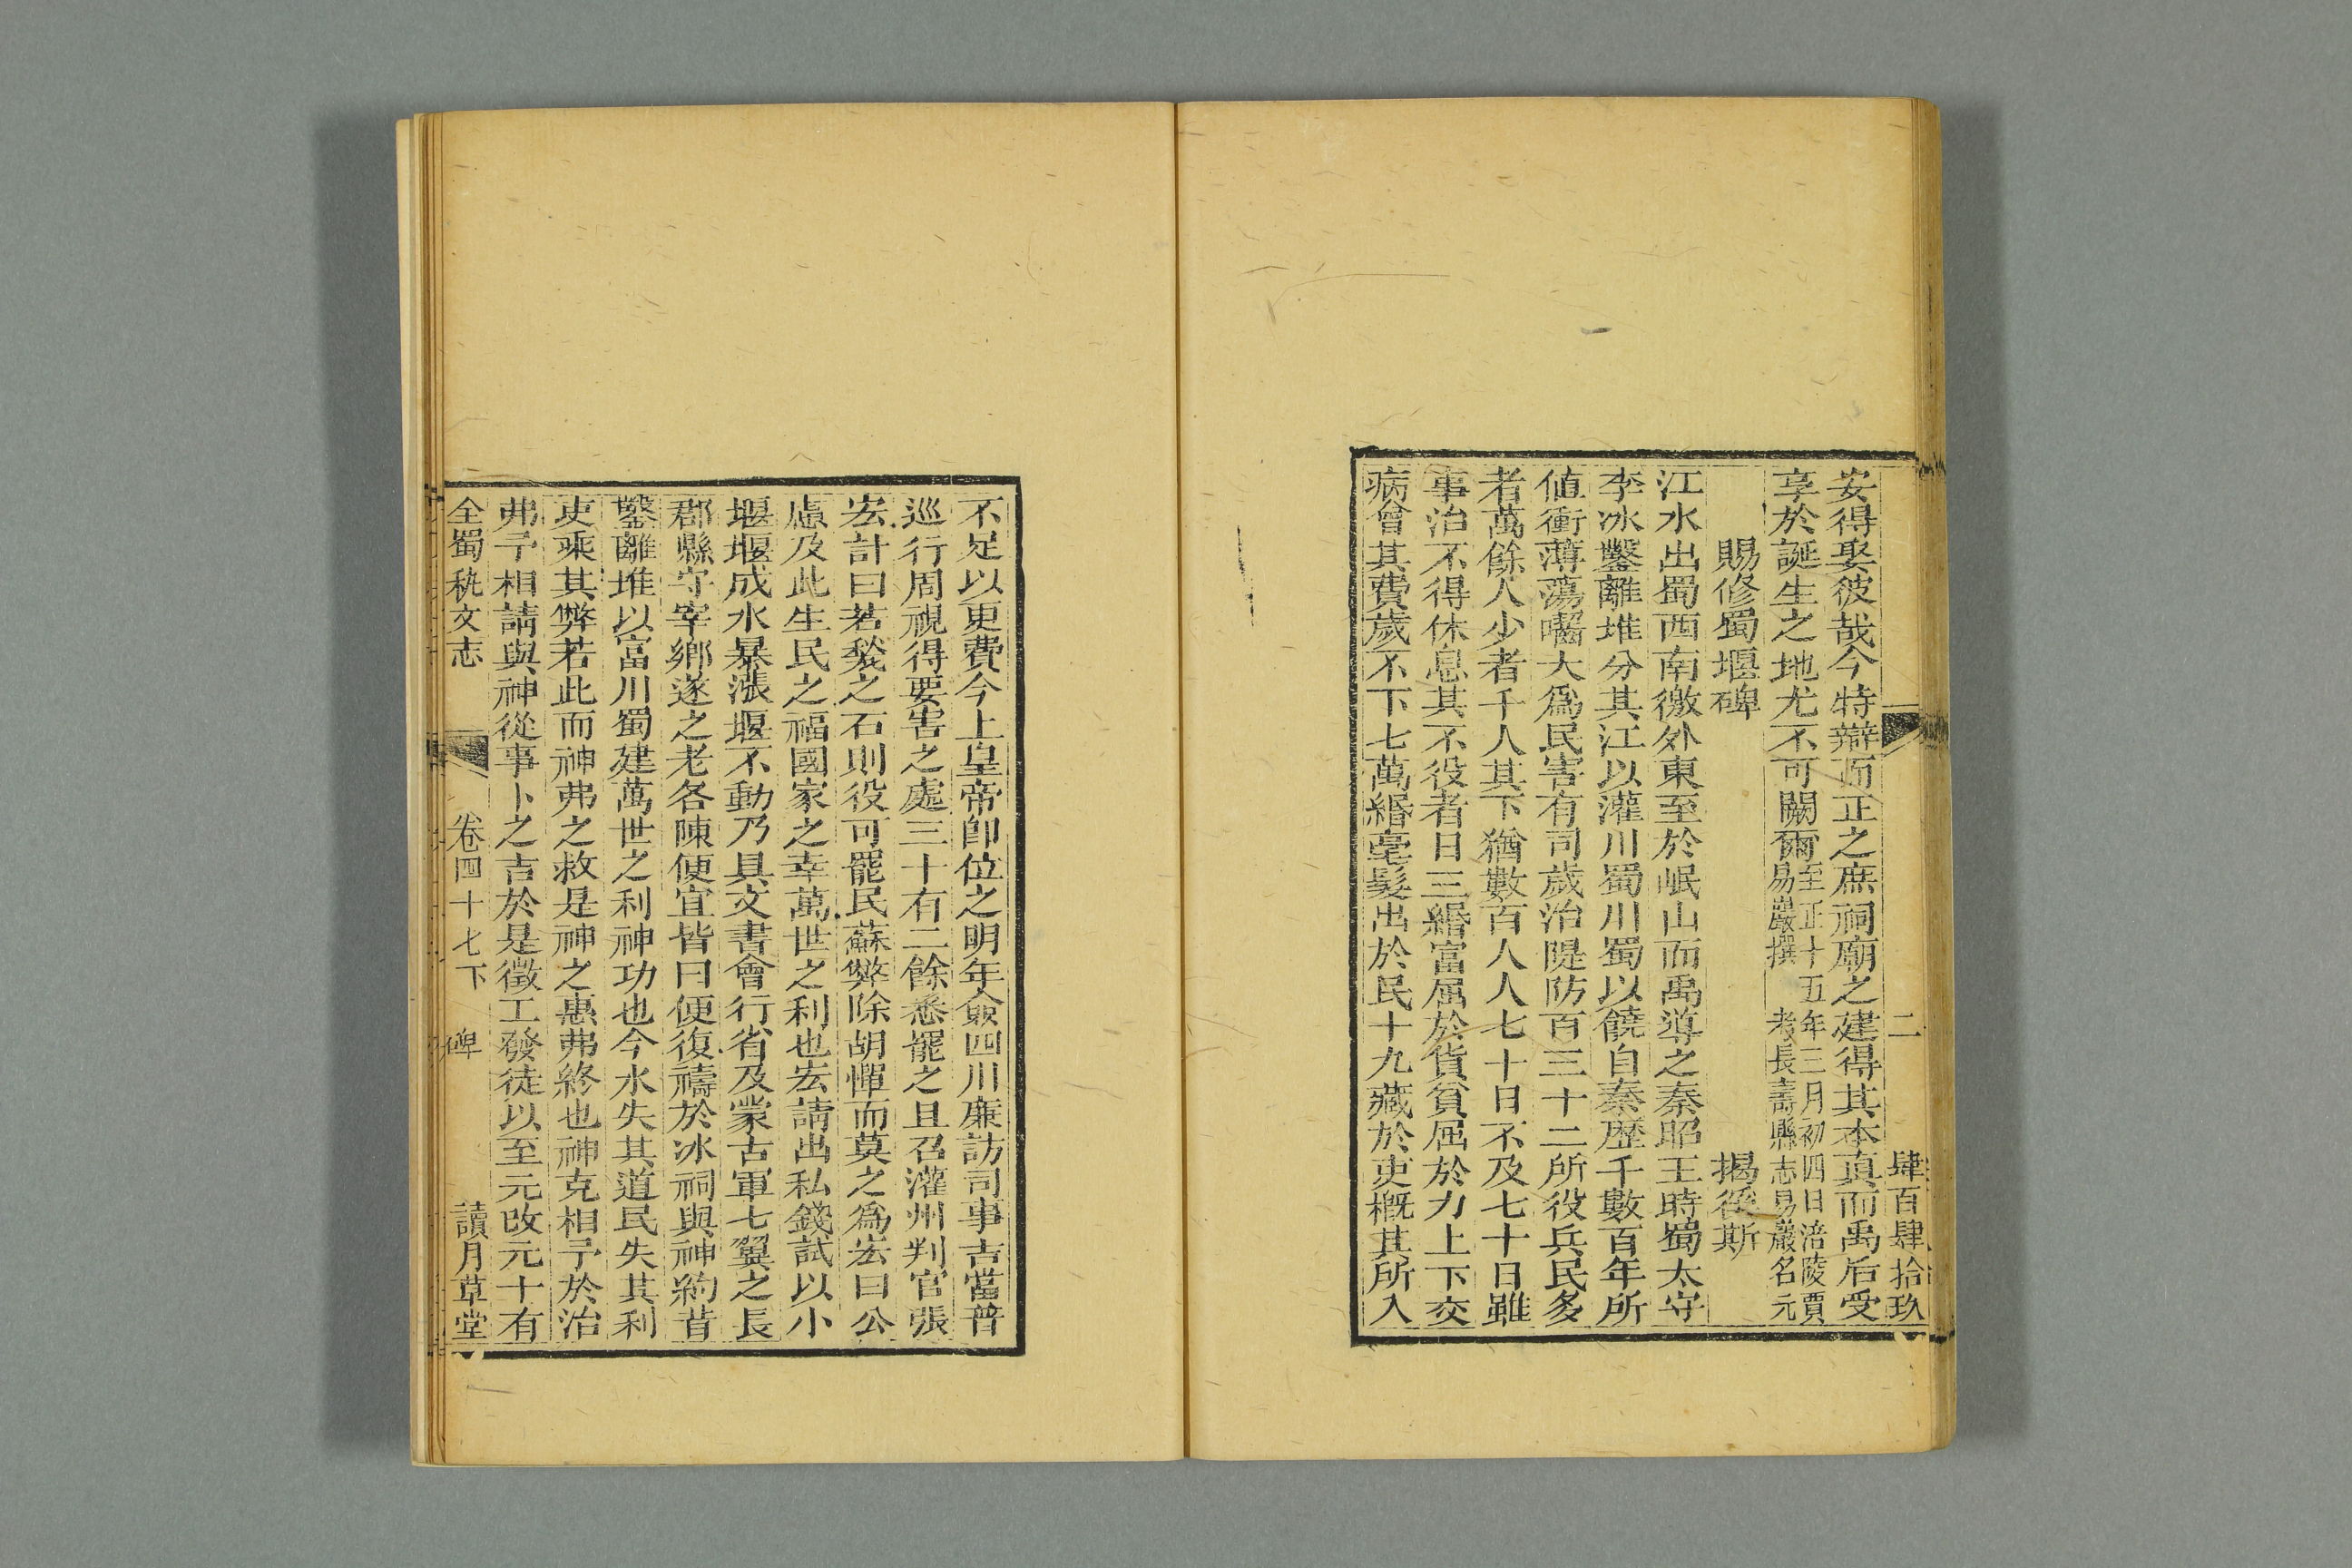 二 肆百肆拾玖
安得娶彼哉今特辯而正之庶祠廟之建得其本真而禹后受
享於誕生之地尤不可闕爾至正十五年三月初四日涪陵賈
易巖撰 考長壽縣志易巖名元
賜修蜀堰碑 揭傒斯
江水出蜀西南徼外東至於岷山而禹導之秦昭王時蜀太守
李冰鑿離堆分其江以灌川蜀川蜀以饒自秦歷千數百年所
值衝薄蕩囓大爲民害有司歲治隄防百三十二所役兵民多
者萬餘人少者千人其下猶數百人人七十日不及七十日雖
事治不得休息其不役者日三緡富屈於貨貧屈於力上下交
病會其費歲不下七萬緡毫髮出於民十九藏於吏概其所入
不足以更費今上皇帝卽位之明年僉四川廉訪司事吉當普
巡行周視得要害之處三十有二餘悉罷之且召灌州判官張
宏計曰若甃之石則役可罷民蘇弊除胡憚而莫之爲宏曰公
慮及此生民之福國家之幸萬世之利也宏請出私錢試以小
堰堰成水暴漲堰不動乃具文書會行省及蒙古軍七翼之長
郡縣守宰鄉遂之老各陳便宜皆曰便復禱於冰祠與神約昔
鑿離堆以富川蜀建萬世之利神功也今水失其道民失其利
吏乘其弊若此而神弗之救是神之惠弗終也神克相予於治
弗予相請與神從事卜之吉於是徵工發徒以至元改元十有
全蜀秇文志 卷四十七下 碑 讀月草堂